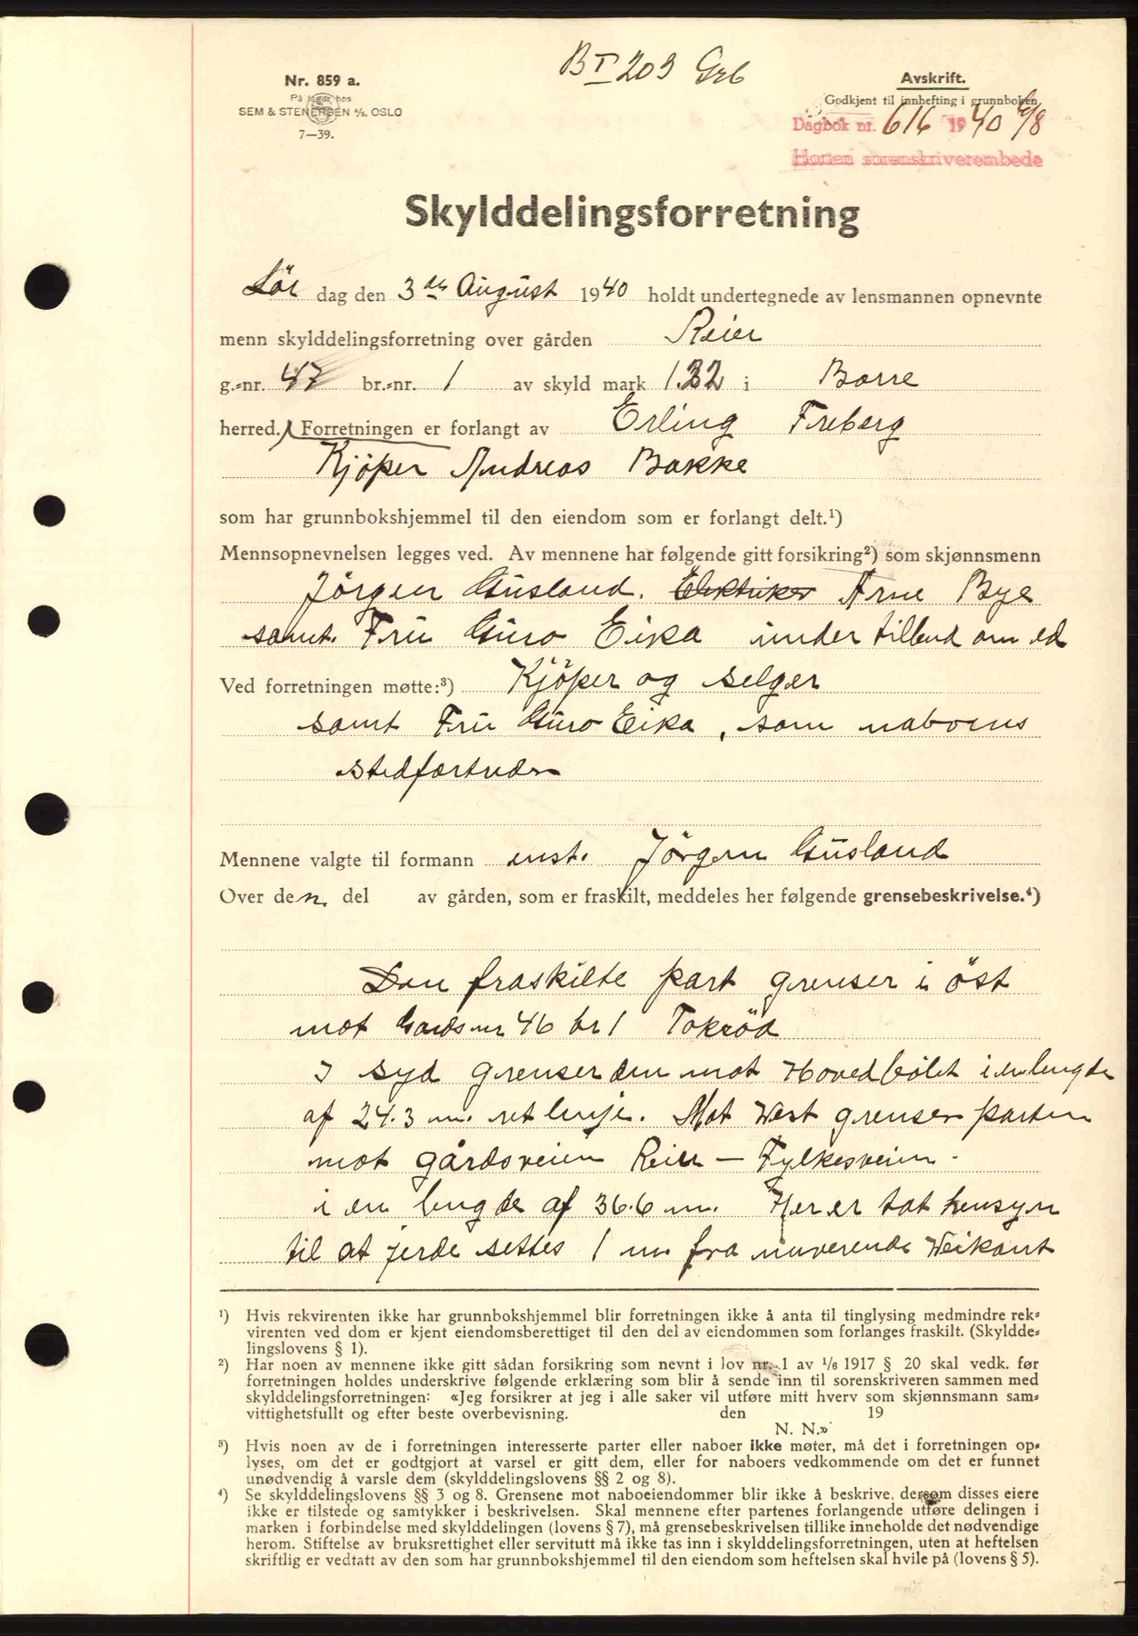 B I 203 Grb
Nr. 859 a.
På lager hos
SEM & STENERSEN A/S, OSLO
7—39.
Avskrift.
Godkjent til innhefting i grunnboken
Dagbok nr. 616 1940 6/8
Horten sorenskriverembede
Skylddelingsforretning
Lör dag den 3de August 1940 holdt undertegnede av lensmannen opnevnte
menn skylddelingsforretning over gården Reier
g.-nr. 47 br.-nr. 1 av skyld mark 1.32 i Borre
herred. Forretningen er forlangt av Erling Freberg
Kjöper Andreas Bakke
som har grunnbokshjemmel til den eiendom som er forlangt delt.¹)
Mennsopnevnelsen legges ved. Av mennene har følgende gitt forsikring²) som skjønnsmenn
Jörgen Gusland. Elektriker Arne Bye
samt. Fru Guro Eika under tilbud om ed
Ved forretningen møtte:³) Kjöper og selger
samt Fru Guro Eika, som naboens
stedfortreder
Mennene valgte til formann inst. Jörgen Gusland
Over den del av gården, som er fraskilt, meddeles her følgende grensebeskrivelse.⁴)
Den fraskilte part grenser i öst
mot Gards nr 46 br 1 Tokröd
I syd grenser den mot Hovedbölet i en lengde
af 24.3 m. ret linje. Mot Vest grenser parten
mot gårdsveien Reier — Fylkesveien.
i en lengde af 36.6 m. Her er tat hensyn
til at jerde settes 1 m. fra nuverende Veikant
¹) Hvis rekvirenten ikke har grunnbokshjemmel blir forretningen ikke å anta til tinglysing medmindre rek-
virenten ved dom er kjent eiendomsberettiget til den del av eiendommen som forlanges fraskilt. (Skyldde-
lingslovens § 1).
²) Har noen av mennene ikke gitt sådan forsikring som nevnt i lov nr. 1 av 1/6 1917 § 20 skal vedk. før
forretningen holdes underskrive følgende erklæring som blir å sende inn til sorenskriveren sammen med
skylddelingsforretningen: «Jeg forsikrer at jeg i alle saker vil utføre mitt hverv som skjønnsmann sam-
vittighetsfullt og efter beste overbevisning. den 19
N. N.»
³) Hvis noen av de i forretningen interesserte parter eller naboer ikke møter, må det i forretningen op-
lyses, om det er godtgjort at varsel er gitt dem, eller for naboers vedkommende om det er funnet
unødvendig å varsle dem (skylddelingslovens §§ 2 og 8).
⁴) Se skylddelingslovens §§ 3 og 8. Grensene mot naboeiendommer blir ikke å beskrive, dersom disses eiere
ikke er tilstede og samtykker i beskrivelsen. Skal mennene efter partenes forlangende utføre delingen i
marken i forbindelse med skylddelingen (lovens § 7), må grensebeskrivelsen tillike inneholde det nødvendige
herom. Stiftelse av bruksrettighet eller servitutt må ikke tas inn i skylddelingsforretningen, uten at heftelsen
skriftlig er vedtatt av den som har grunnbokshjemmel til den eiendom som heftelsen skal hvile på (lovens § 5).